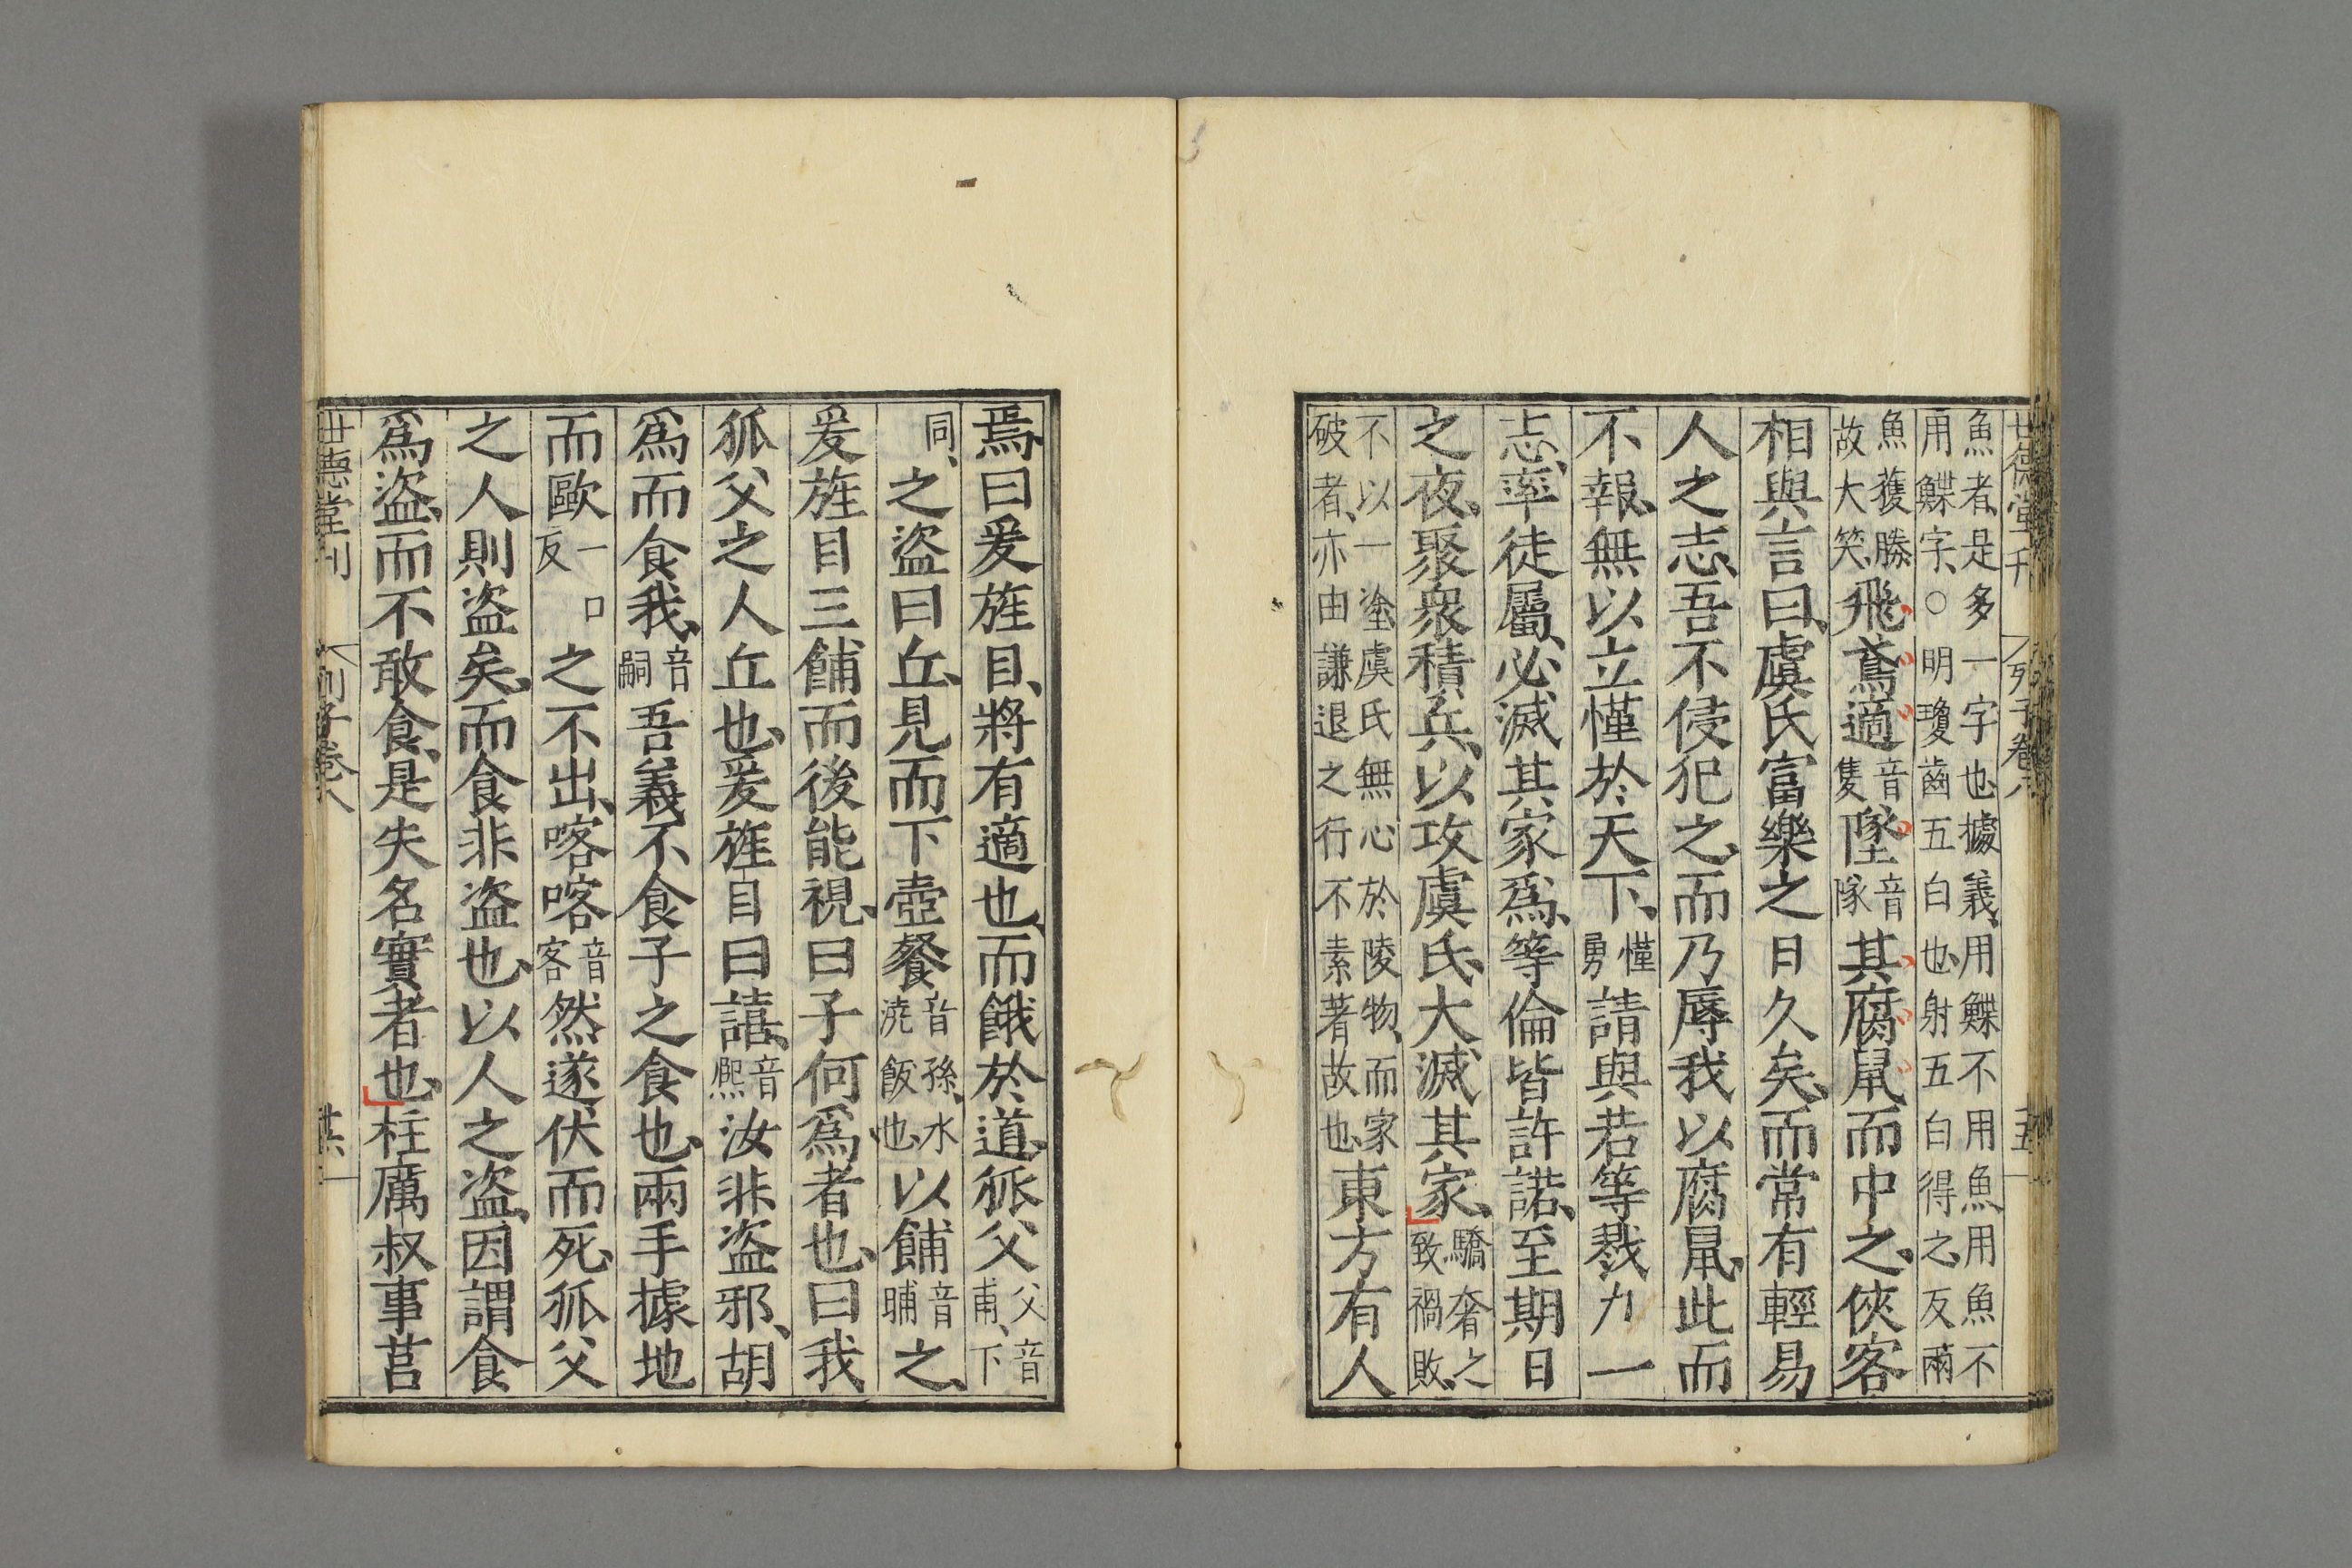 世德堂刊
列子卷八
魚者是多一字也據義、用鰈不用魚、用魚不
用鰈字、○明瓊齒五白也、射五白得之、反兩
魚獲勝故大笑、飛鳶適音隻墜音隊其腐鼠而中之、俠客
相與言曰、虞氏富樂之日久矣、而常有輕易
人之志、吾不侵犯之、而乃辱我以腐鼠、此而
不報、無以立慬於天下、慬勇請與若等戮力一
志、率徒屬、必滅其家爲、等倫皆許諾、至期日
之夜、聚衆積兵、以攻虞氏、大滅其家、驕奢之致禍敗、
不以一塗虞氏無心於陵物、而家
破者、亦由謙退之行不素著故也、東方有人
焉曰爰旌目、將有適也、而餓於道、狐父父音甫、下
同、之盜曰丘、見而下壺餐音孫、水澆飯也、以餔音晡之、
爰旌目三餔而後能視、曰子何爲者也、曰我
狐父之人丘也、爰旌目曰譆、音熙汝非盜邪、胡
爲而食我、音嗣吾義不食子之食也、兩手據地
而歐一口反之不出、喀喀音客然遂伏而死、狐父
之人則盜矣、而食非盜也、以人之盜、因謂食
爲盜、而不敢食、是失名實者也、柱厲叔事莒
世德堂刊
列子卷八